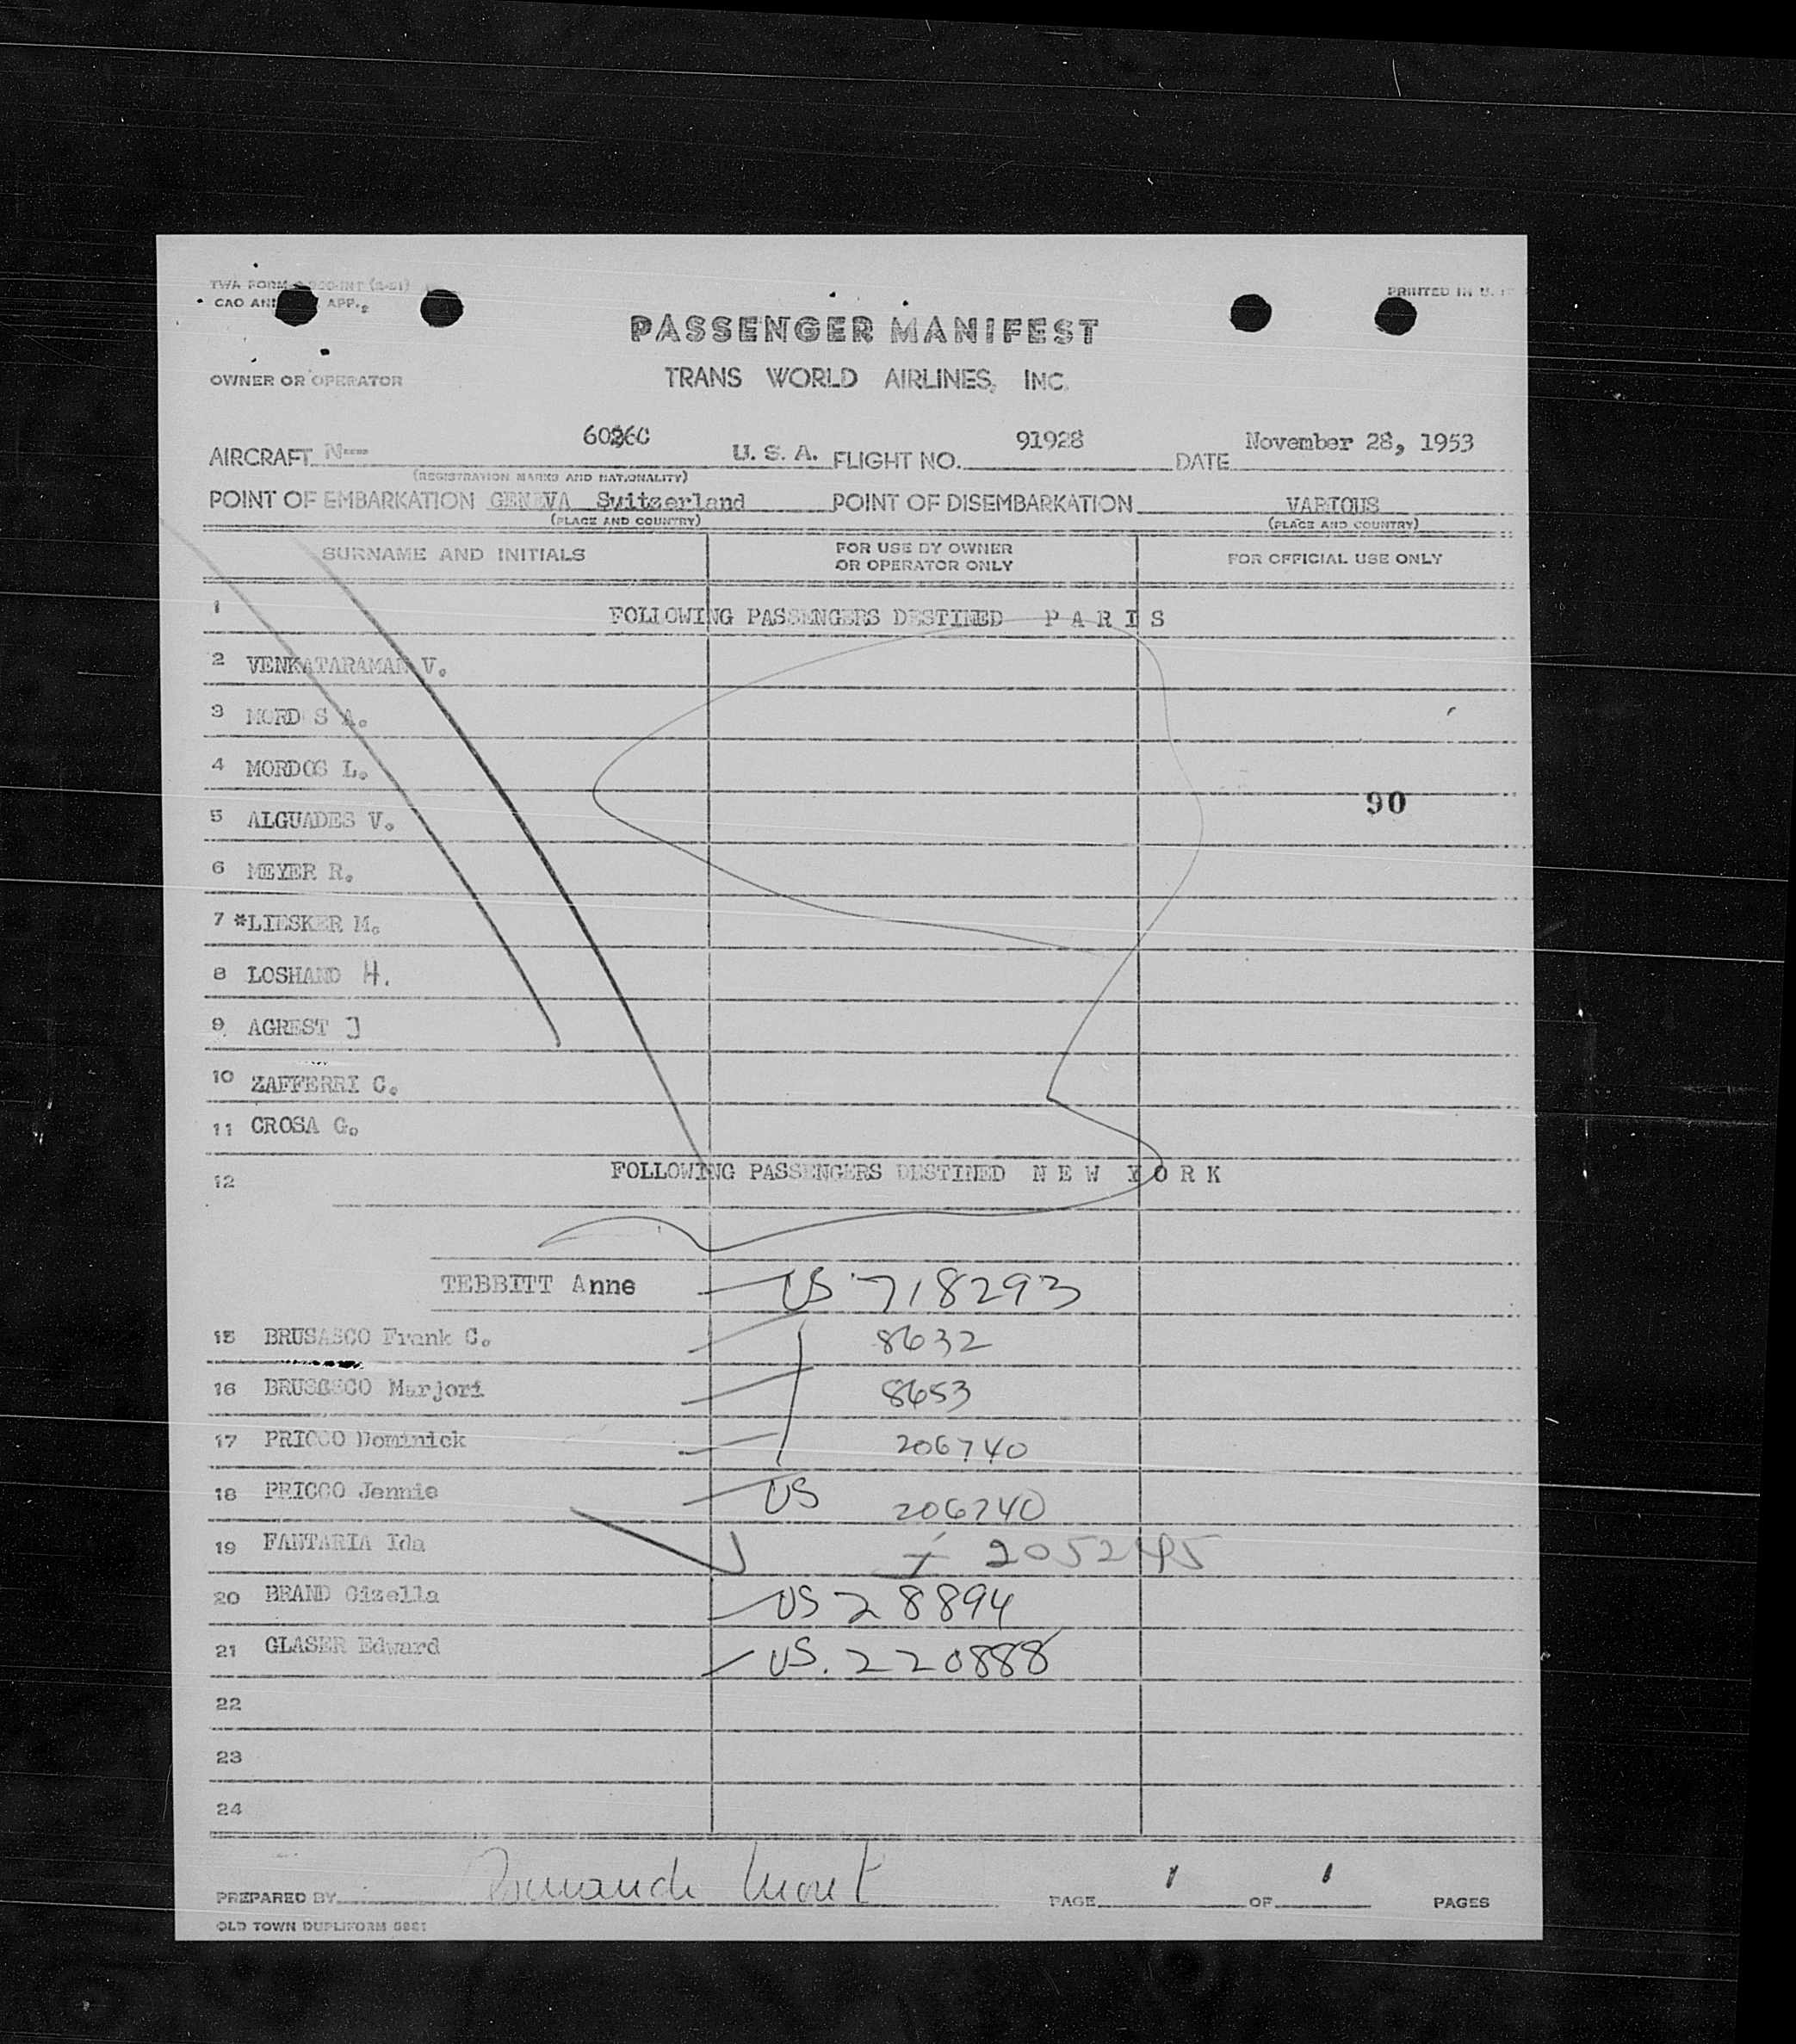 PASSENGER MANIFEST
PRINTED IN U.
CAO APP.,
OWNER OR OPERATOR TRANS WORLD AIRLINES, INC.
AIRCRAFT N U. S. A. FLIGHT NO. 91928 DATE November 28, 1953
(REGISTRATION MARKS AND NATIONALITY)
POINT OF EMBARKATION GENEVA Switzerland POINT OF DISEMBARKATION VARIOUS
(PLACE AND COUNTRY) (PLACE AND COUNTRY)
SURNAME AND INITIALS FOR USE BY OWNER OR OPERATOR ONLY FOR OFFICIAL USE ONLY
1 FOLLOWING PASSENGERS DESTINED P A R I S
2 VENKATARAMAN V.
3 MORD S A.
4 MORDOS L.
90
5 ALGUADES V.
6 MEYER R.
7 *LIESKER M.
8 LOSHAND H.
9 AGREST J
10 ZAFFERRI C.
11 CROSA G.
12 FOLLOWING PASSENGERS DESTINED N E W Y O R K
TEBBITT Anne US 718293
15 BRUSASCO Frank C. 8632
16 BRUSASCO Marjori 8653
17 PRICCO Dominick 206740
18 PRICCO Jennie US 206740
19 FANTARIA Ida
20 BRAND Gizella US 28894
21 GLASER Edward US. 220888
22
23
24
PREPARED BY PAGE 1 OF 1 PAGES
OLD TOWN DUPLIFORM